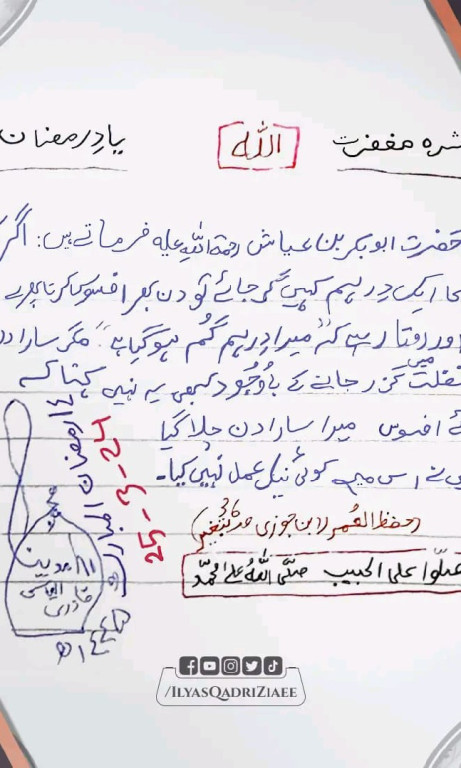 شرہ مغفرت
اللہ
یادِ رمضان
حضرت ابوبکر بن عیاش رحمۃ اللہِ علیه فرماتے ہیں: اگر
کا ایک دِرہم کہیں گِر جائے تو دن بھر افسوس کرتا پھرے
اور روتا رہے کہ "میرا دِرہم گُم ہوگیا ہے" مگر سارا د
غفلت میں گزر جانے کے باوُجُود کبھی یہ نہیں کہتا کہ
ئے افسوس میرا سارا دن چلا گیا
نے اس میں کوئی نیک عمل نہیں کیا۔
(حفظ العُمر لابن جوزی بتغیر)
صلّوا علی الحبیب صلَّی اللہُ علٰی محمّد
۱۴ رمضان المبارک
۱۴۴۵ھ
25-3-24
محمد
الیاس
قادری
/ILYASQADRIZIAEE